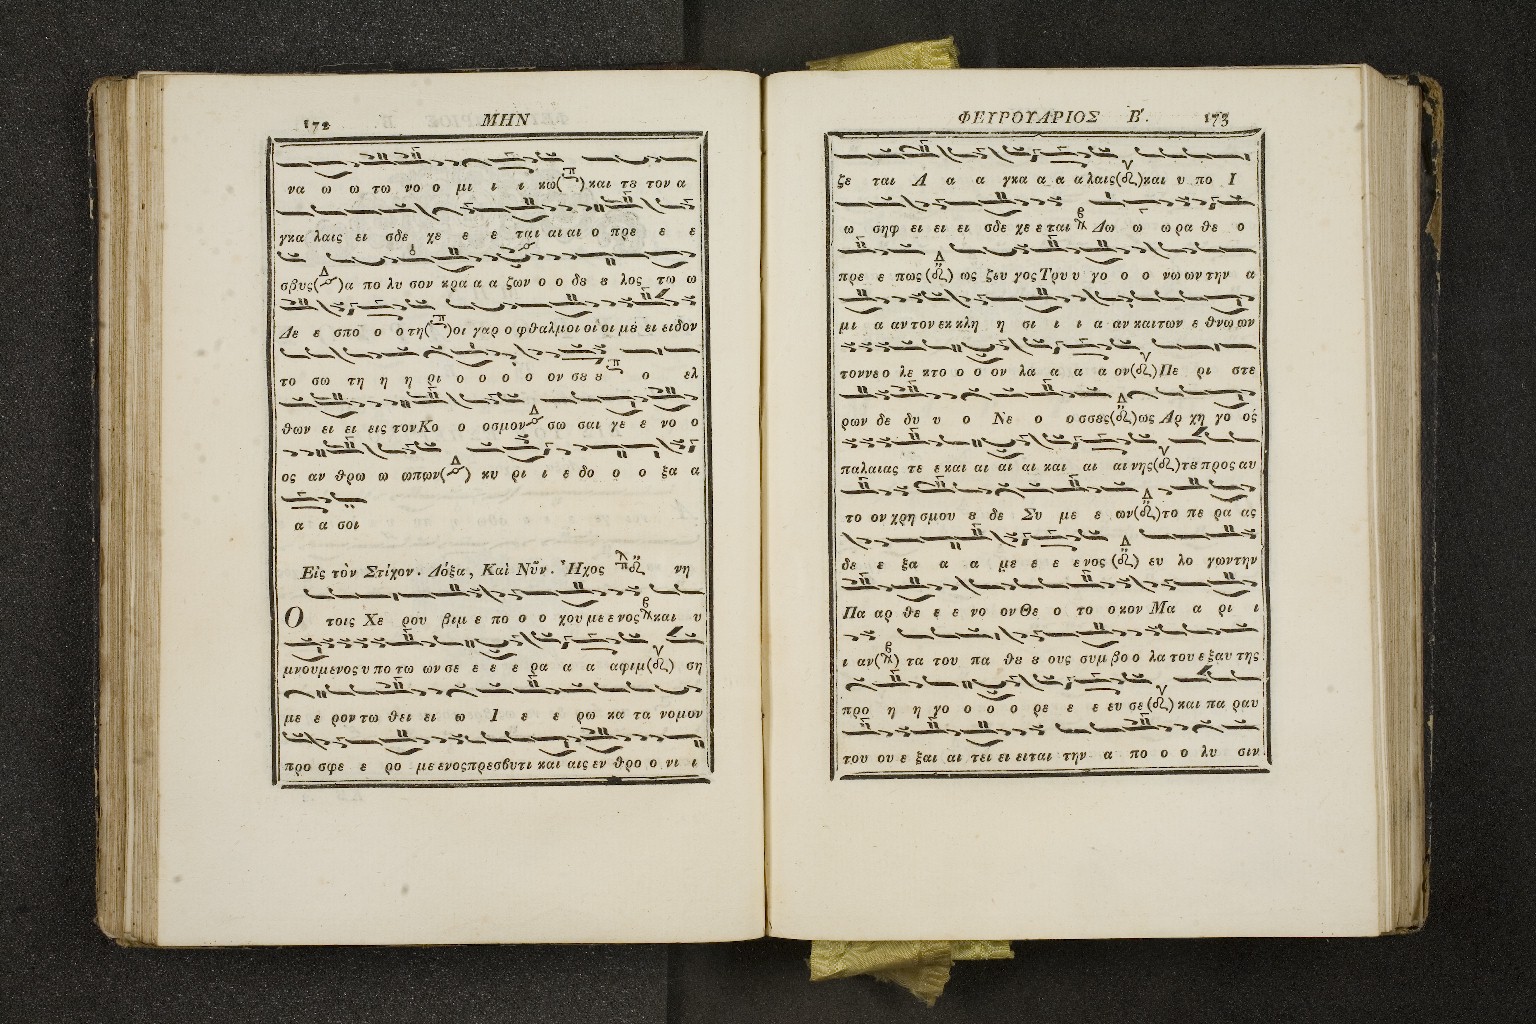 172 ΜΗΝ
να ω ω τω νο ο μι ι ι κω(π) και τȣ τον α
γκα λαις ει σδε χε ε ε ται αι αι ο πρε ε ε
σβυς(Δ)α πο λυ σον κρα α α ζων ο ο δȣ ȣ λος τω ω
Δε ε σπο ο ο τη(π)οι γαρ ο φθαλμοι οι οι μȣ ει ειδον
το σω τη η η ρι ο ο ο ο ον σȣ ȣ ο ελ
θων ει ει εις τον Κο ο οσμον Δ σω σαι γε ε νο ο
ος αν θρω ω ωπων(Δ) κυ ρι ι ε δο ο ο ξα α
α α σοι
Εἰς τὸν Στίχον. Δόξα, Καὶ Νῦν. Ἦχος λ π δ νη
Ο τοις Χε ρου βιμ ε πο ο ο χου με ε νος και υ
μνουμενος υ πο τω ων σε ε ε ε ρα α α αφιμ(δ) ση
με ε ρον τω θει ει ω Ι ε ε ρω κα τα νομον
προ σφε ε ρο με ενος πρεσβυτι και αις εν θρο ο νι ι
ΦΕΥΡΟΥΑΡΙΟΣ Β΄. 173
ζε ται Α α α γκα α α α λαις(δ)και υ πο Ι
ω σηφ ει ει ει σδε χε ε ται Δω ω ω ρα θε ο
πρε ε πως (δ) ως ζευ γος Τρυ υ γο ο ο νω ων την α
μι α αν τον εκ κλη η σι ι ι α αν και των ε θνω ων
τον νε ο λε κτο ο ο ον λα α α α ον(δ)Πε ρι στε
ρων δε δυ υ ο Νε ο ο οσσȣς(δ)ως Αρ χη γο ος
παλαιας τε ε και αι αι αι και αι αι νης(δ)τȣ προς αυ
το ον χρη σμου ȣ δε Συ με ε ων(δ)το πε ρα ας
δε ε ξα α α με ε ε ε νος (δ) ευ λο γων την
Πα αρ θε ε ε νο ον Θε ο το ο κον Μα α ρι ι
ι αν( ) τα του πα θȣ ȣ ους συμ βο ο λα του ε ξαυ της
προ η η γο ο ο ο ρε ε ε ευ σε(δ) και πα ραυ
του ου ε ξαι αι τει ει ειται την α πο ο ο λυ σιν